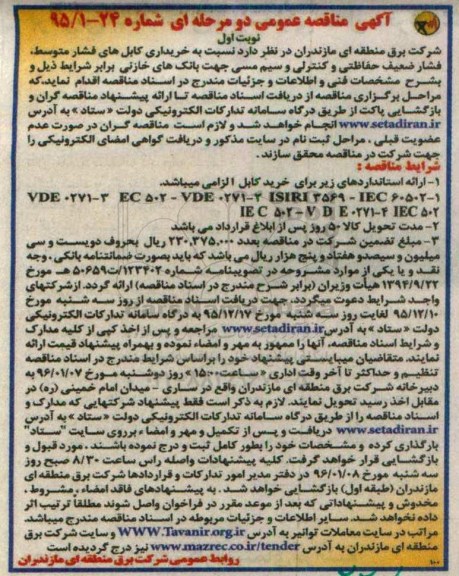 آگهی مناقصه عمومی دو مرحله ای شماره ۲۴-۹۵/۱
نوبت اول
شرکت برق منطقه ای مازندران در نظر دارد نسبت به خریداری کابل های فشار متوسط،
فشار ضعیف حفاظتی و کنترلی و سیم مسی جهت بانک های خازنی برابر شرایط ذیل و
بشرح مشخصات فنی و اطلاعات و جزئیات مندرج در اسناد مناقصه اقدام نماید،که
مراحل برگزاری مناقصه از دریافت اسناد مناقصه تا ارائه پیشنهاد مناقصه گران و
بازگشایی پاکت از طریق درگاه سامانه تدارکات الکترونیکی دولت «ستاد» به آدرس
www.setadiran.ir انجام خواهد شد و لازم است مناقصه گران در صورت عدم
عضویت قبلی ، مراحل ثبت نام در سایت مذکور و دریافت گواهی امضای الکترونیکی را
جهت شرکت در مناقصه محقق سازند.
شرایط مناقصه :
۱- ارائه استانداردهای زیر برای خرید کابل الزامی میباشد.
VDE ۰۲۷۱-۳ EC ۵۰۲ - VDE ۰۲۷۱-۳ ISIRI ۳۵۶۹ - IEC ۶۰۵۰۲-۱
IE C ۵۰۲ -V D E ۰۲۷۱-۴ IEC ۵۰۲
۲- مدت تحویل کالا ۵۰ روز پس از ابلاغ قرارداد می باشد
۳- مبلغ تضمین شرکت در مناقصه بعدد ۲۳۰,۳۷۵,۰۰۰ ریال بحروف دویست و سی
میلیون و سیصدو هفتاد و پنج هزار ریال می باشد که باید بصورت ضمانتنامه بانکی ، وجه
نقد و یا یکی از موارد مشروحه در تصویبنامه شماره ۱۲۳۴۰۲/ت۵۰۶۵۹ هـ مورخ
۱۳۹۴/۹/۲۲ هیأت وزیران (برابر شرح مندرج در اسناد مناقصه) ارائه گردد. ازشرکتهای
واجد شرایط دعوت میگردد، جهت دریافت اسناد مناقصه از روز سه شنبه مورخ
۹۵/۱۲/۱۰ لغایت روز سه شنبه مورخ ۹۵/۱۲/۱۷ به درگاه سامانه تدارکات الکترونیکی
دولت «ستاد» به آدرس www.setadiran.ir مراجعه و پس از اخذ کپی از کلیه مدارک
و شرایط اسناد مناقصه، آنها را ممهور به مهر و امضاء نموده و بهمراه پیشنهاد قیمت ارائه
نمایند. متقاضیان میبایستی پیشنهاد خود را براساس شرایط مندرج در اسناد مناقصه
تنظیم و حداکثر تا آخر وقت اداری «ساعت ۱۵۰۰» روز دوشنبه مورخ ۹۶/۰۱/۰۷ به
دبیرخانه شرکت برق منطقه ای مازندران واقع در ساری - میدان امام خمینی (ره) در
مقابل اخذ رسید تحویل نمایند. لازم به ذکر است فقط پیشنهاد شرکتهایی که مدارک و
اسناد مناقصه را از طریق درگاه سامانه تدارکات الکترونیکی دولت «ستاد» به آدرس
www.setadiran.ir دریافت و پس از تکمیل و مهر و امضاء برروی سایت "ستاد"
بارگذاری کرده و مشخصات خود را بطور کامل ثبت و درج نموده باشند، مورد قبول و
بازگشایی قرار خواهد گرفت. کلیه پیشنهادات واصله راس ساعت ۸/۳۰ صبح روز
سه شنبه مورخ ۹۶/۰۱/۰۸ در دفتر مدیر امور تدارکات و قراردادها شرکت برق منطقه ای
مازندران (طبقه اول) بازگشایی خواهد شد. به پیشنهادهای فاقد امضاء ، مشروط ،
مخدوش و پیشنهاداتی که بعد از موعد مقرر در فراخوان واصل شوند مطلقا ترتیب اثر
داده نخواهد شد. سایر اطلاعات و جزئیات مربوطه در اسناد مناقصه مندرج میباشد
مراتب در سایت معاملات توانیر به آدرس WWW.Tavanir.org.ir و سایت شرکت برق
منطقه ای مازندران به آدرس www.mazrec.co.ir/tender نیز درج گردیده است
روابط عمومی شرکت برق منطقه ای مازندران